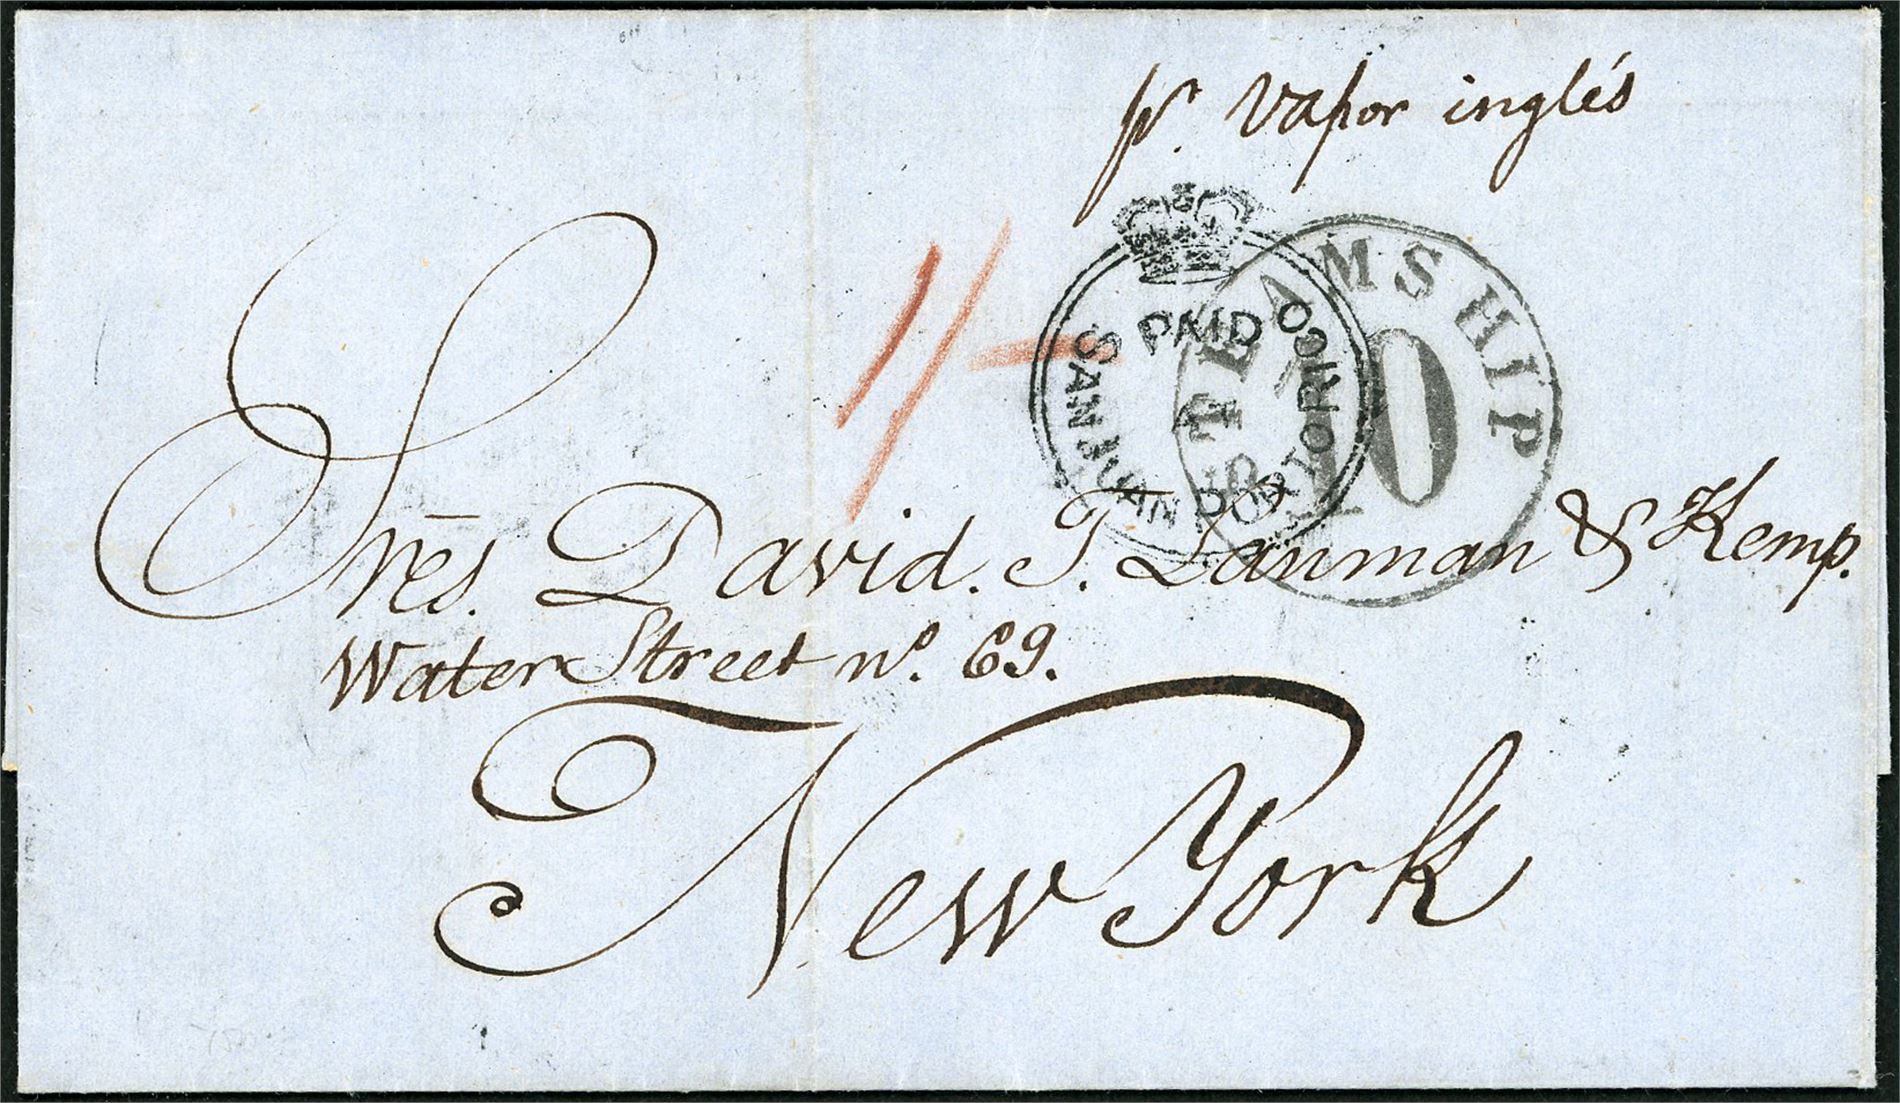 pr. Vapor inglés
1/-
PAID
SAN JUAN PORTO RICO
STEAMSHIP
10
Sres. David. T. Lanman & Kemp.
Water Street nº. 69.
New York